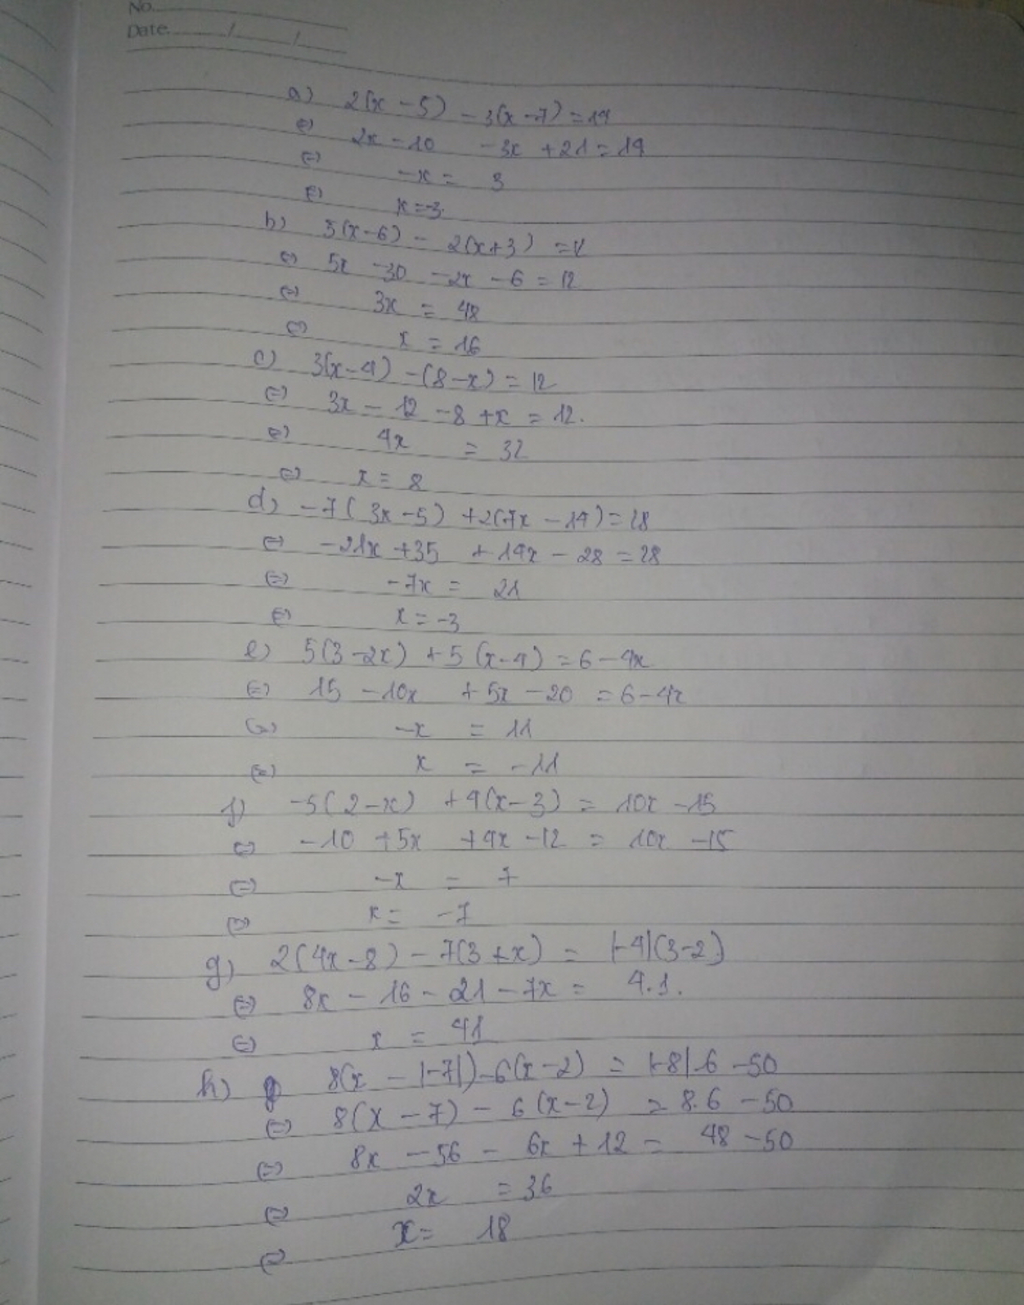 No.
Date / /
a) 2(x - 5) - 3(x - 7) = 14
⇔ 2x - 10 - 3x + 21 = 14
⇔ -x = 3
⇔ x = -3
b) 5(x - 6) - 2(x + 3) = 12
⇔ 5x - 30 - 2x - 6 = 12
⇔ 3x = 48
⇔ x = 16
c) 3(x - 4) - (8 - x) = 12
⇔ 3x - 12 - 8 + x = 12.
⇔ 4x = 32
⇔ x = 8
d) -7(3x - 5) + 2(7x - 14) = 28
⇔ -21x + 35 + 14x - 28 = 28
⇔ -7x = 21
⇔ x = -3
e) 5(3 - 2x) + 5(x - 4) = 6 - 4x
⇔ 15 - 10x + 5x - 20 = 6 - 4x
⇔ -x = 11
⇔ x = -11
f) -5(2 - x) + 4(x - 3) = 10x - 15
⇔ -10 + 5x + 4x - 12 = 10x - 15
⇔ -x = 7
⇔ x = -7
g) 2(4x - 8) - 7(3 + x) = |-4|(3 - 2)
⇔ 8x - 16 - 21 - 7x = 4.1.
⇔ x = 41
h) 8(x - |-7|) - 6(x - 2) = |-8|.6 - 50
⇔ 8(x - 7) - 6(x - 2) = 8.6 - 50
⇔ 8x - 56 - 6x + 12 = 48 - 50
⇔ 2x = 36
⇔ x = 18